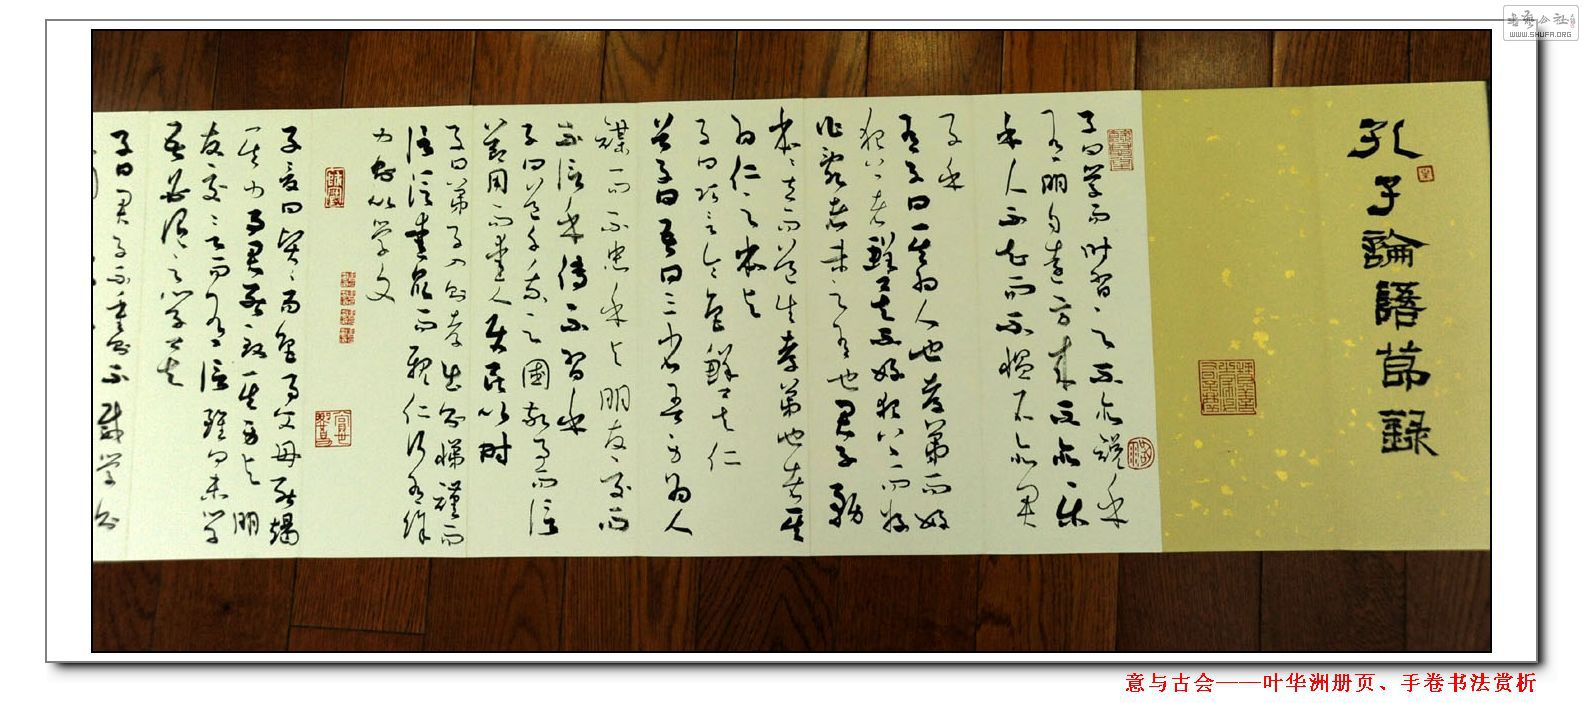 孔子論語節錄
子曰學而時習之不亦說乎
有朋自遠方來不亦樂
乎人不知而不慍不亦君
子乎
有子曰其為人也孝弟而好
犯上者鮮矣不好犯上而好
作亂者未之有也君子務
本〻立而道生孝弟也者其
為仁之本與
子曰巧言令色鮮矣仁
曾子曰吾日三省吾身為人
謀而不忠乎與朋友交而
不信乎傳不習乎
子曰道千乘之國敬事而信
節用而愛人使民以時
子曰弟子入則孝出則悌謹而
信汎愛眾而親仁行有餘
力則以學文
子夏曰賢〻易色事父母能竭
其力事君能致其身與朋
友交言而有信雖曰未學
吾必謂之學矣
子曰君子不重則不威學則
书艺公社
WWW.SHUFA.ORG
意与古会——叶华洲册页、手卷书法赏析